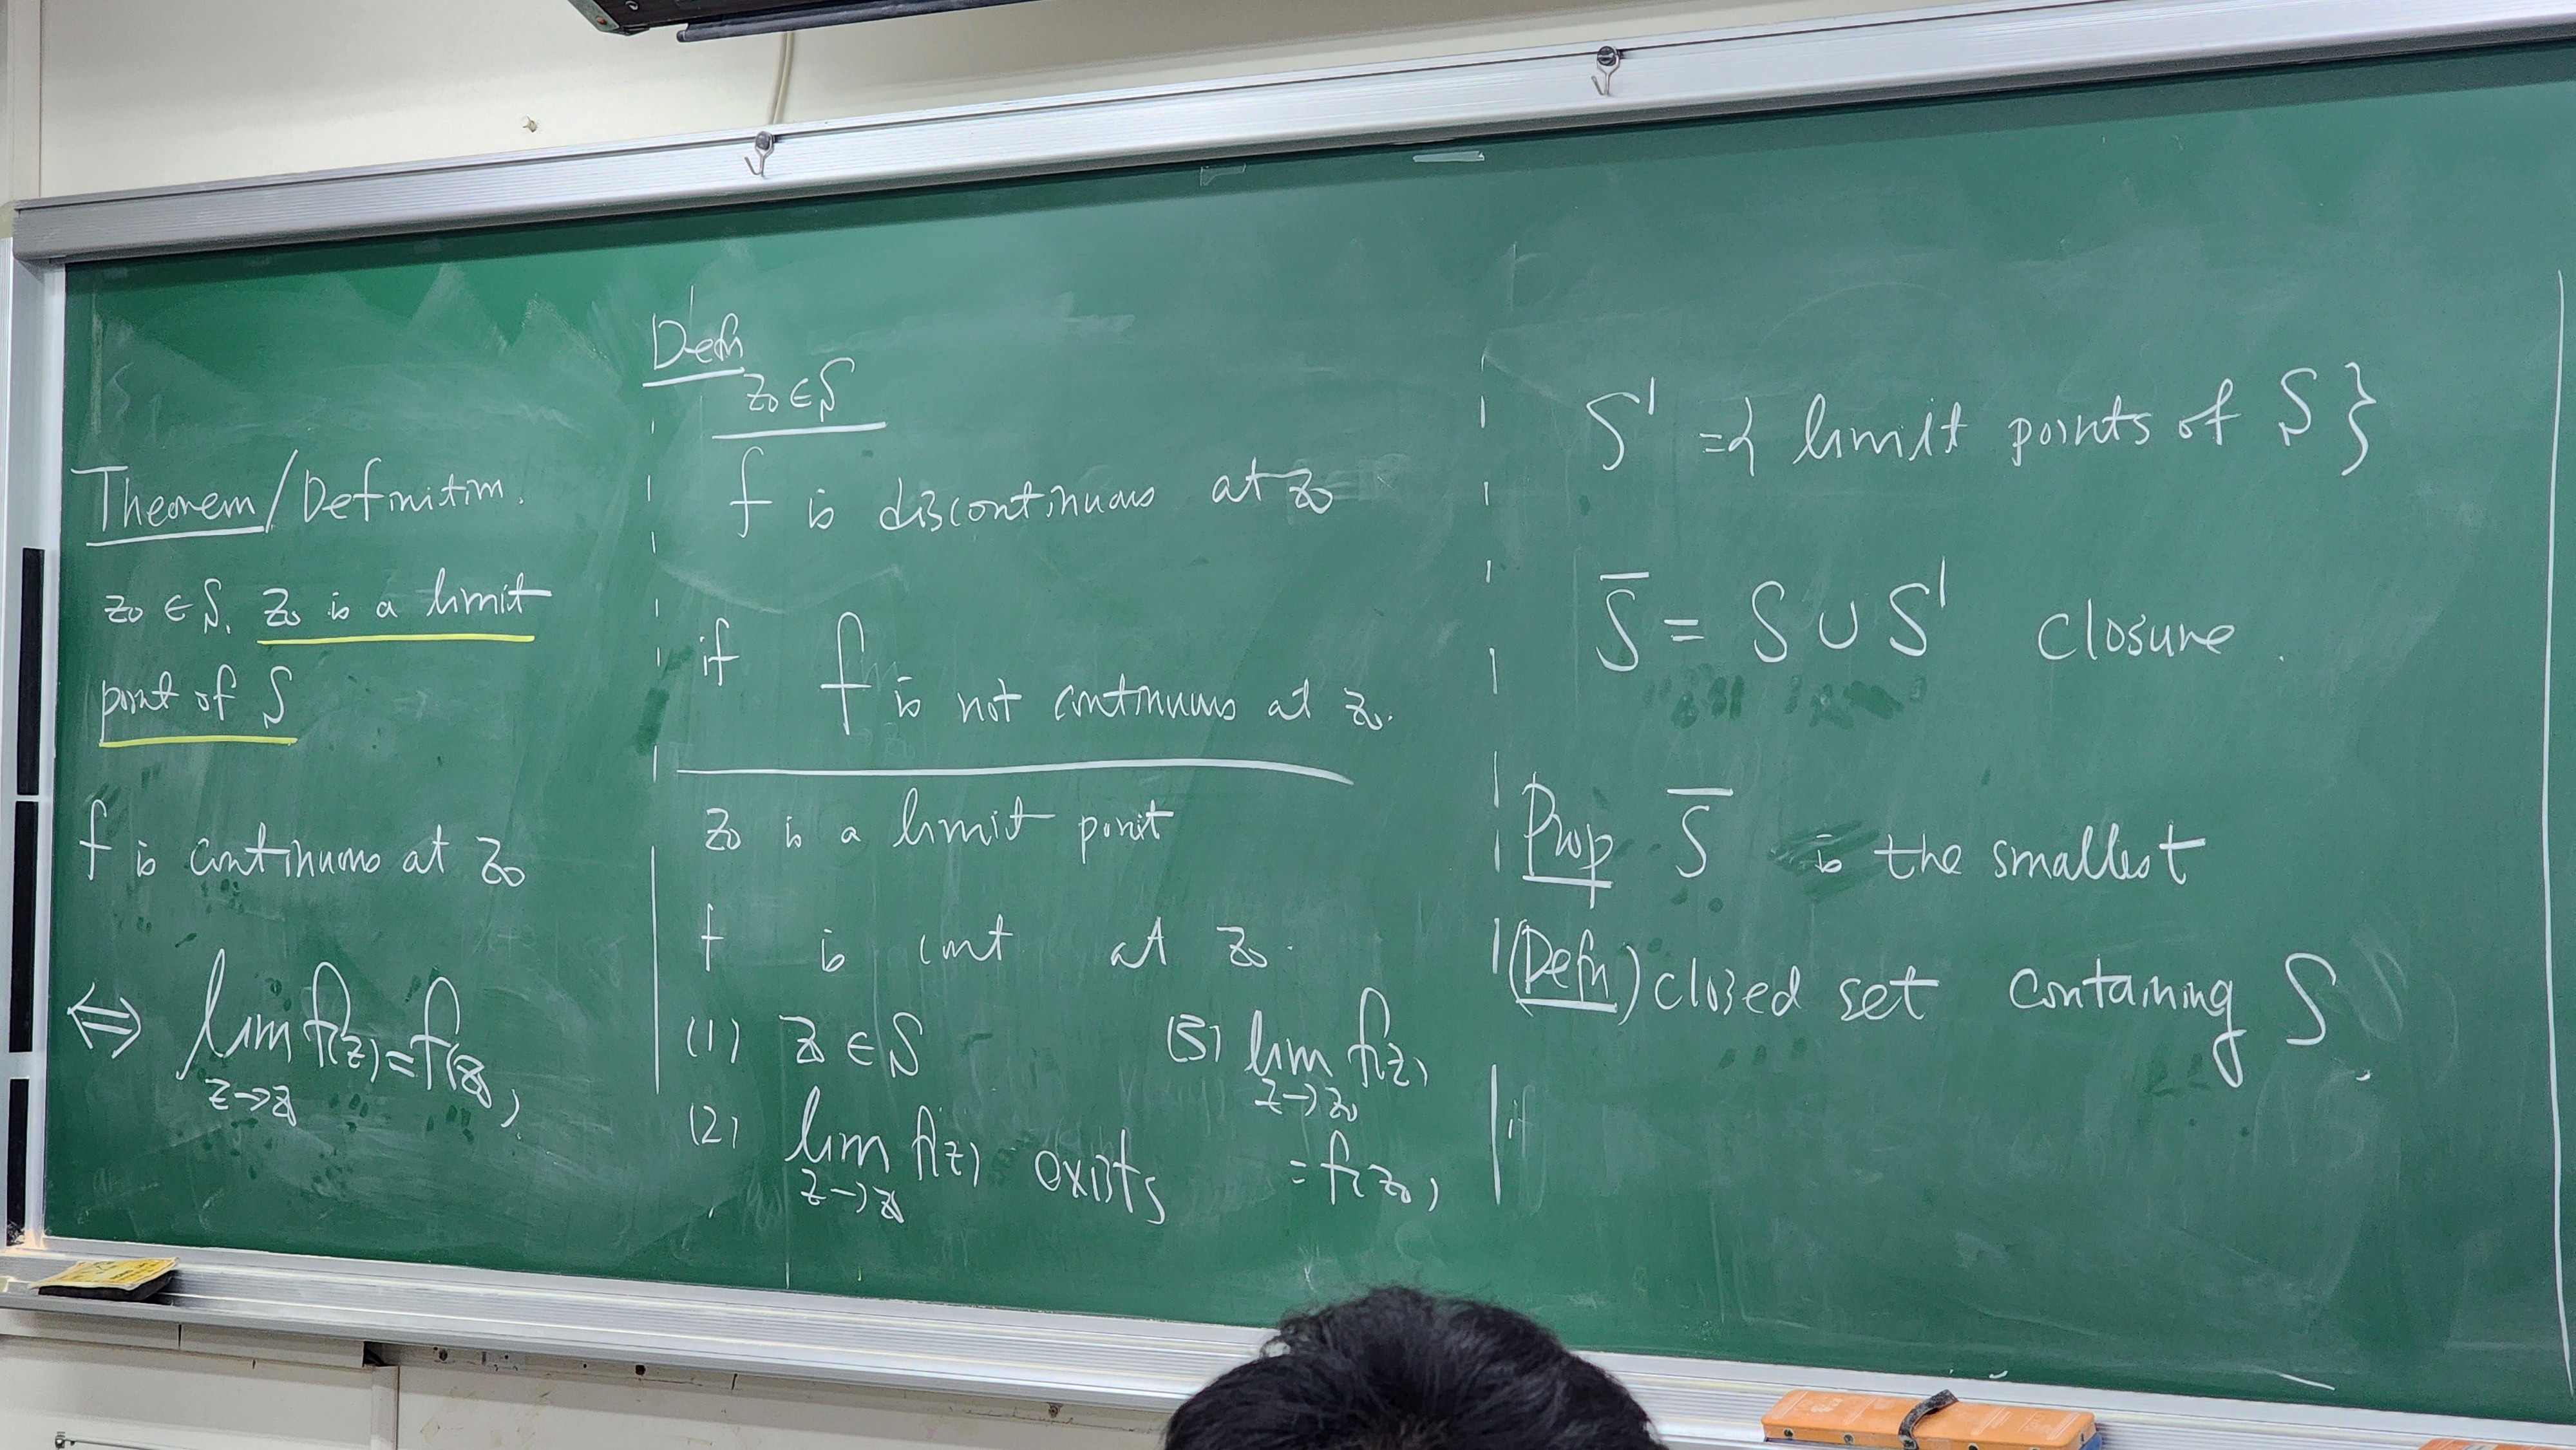 Theorem/Definition.
z₀ ∈ S. z₀ is a limit
point of S
f is continuous at z₀
⇔ lim f(z) = f(z₀)
z→z₀
Defn
z₀ ∈ S
f is discontinuous at z₀
if f is not continuous at z₀.
z₀ is a limit point
f is cont at z₀.
(1) z₀ ∈ S
(2) lim f(z) exists
z→z₀
(3) lim f(z)
z→z₀
= f(z₀)
S' = { limit points of S }
S̅ = S ∪ S' closure.
Prop S̅ is the smallest
(Defn) closed set containing S.
if